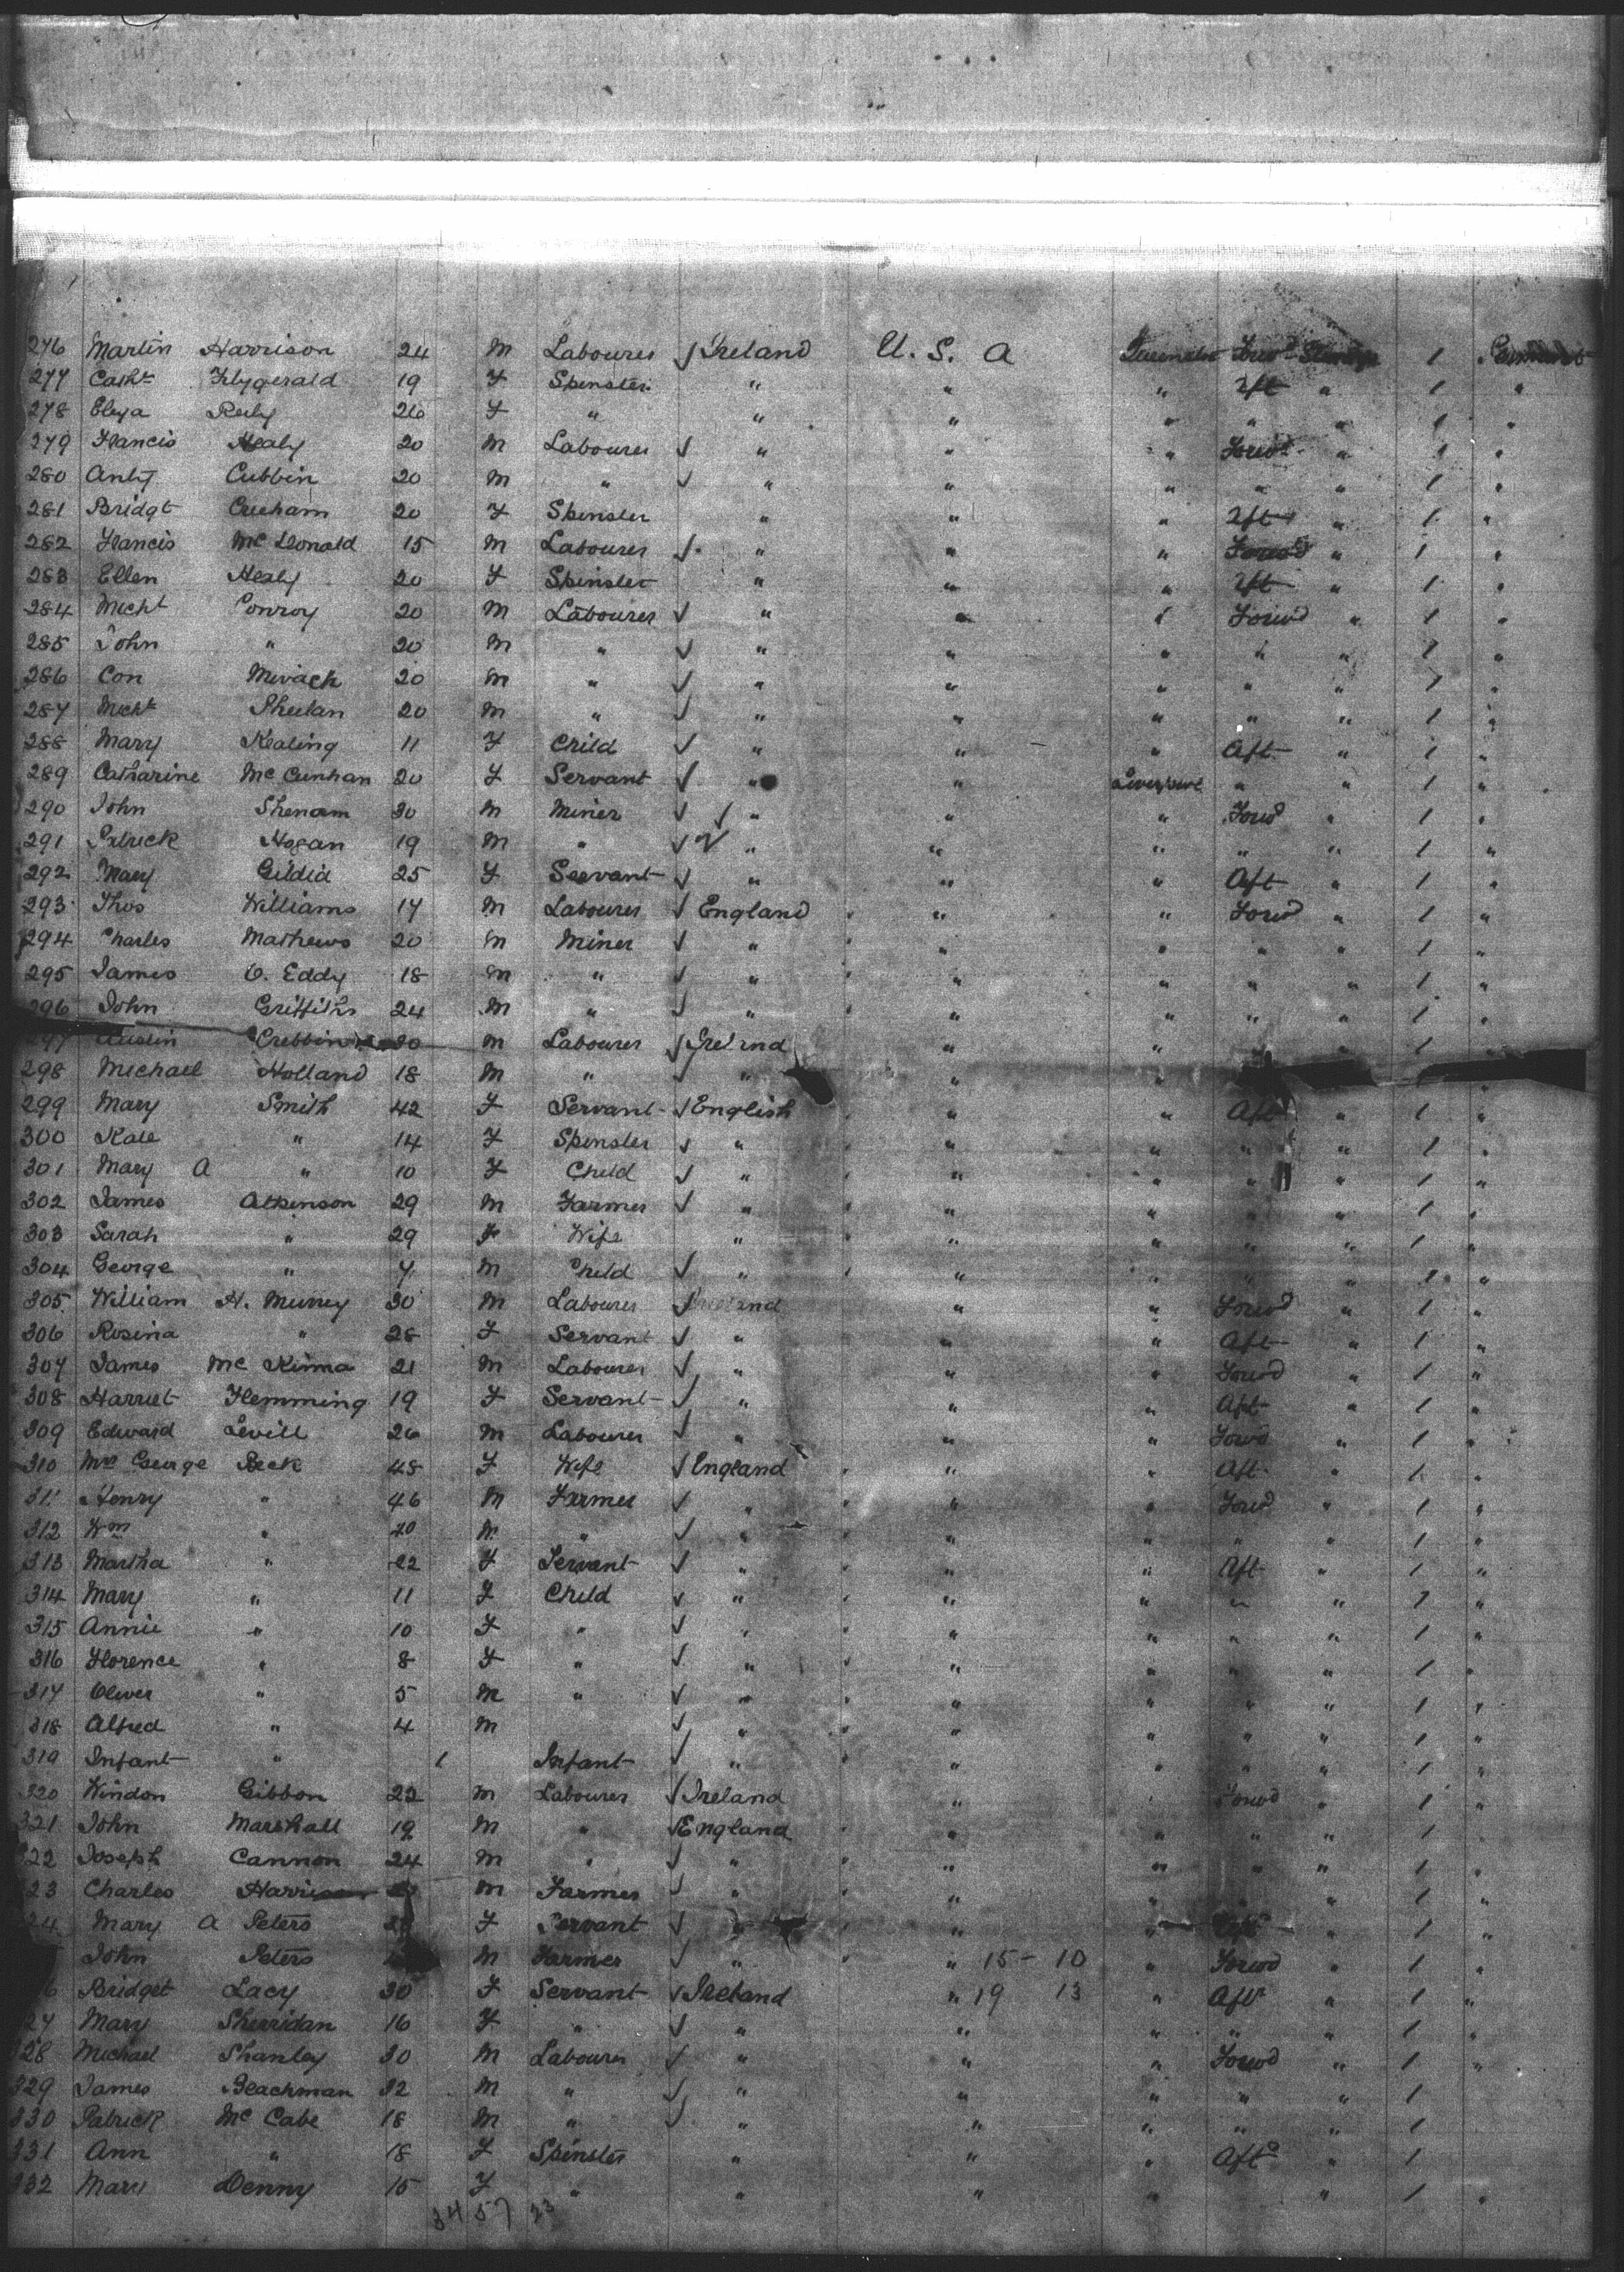 276 Martin Harrison 24 M Labourer √ Ireland U. S. A Forwd Steerage 1
277 Cathe Fitzgerald 19 F Spinster " " " Aft " 1 "
278 Eliza Reily 26 F " " " " " " 1 "
279 Francis Healy 20 M Labourer √ " " " Forwd " 1 "
280 Anty Cubbin 20 M " √ " " " " " 1 "
281 Bridgt 20 F Spinster " " " Aft " 1 "
282 Francis Mc Donald 15 M Labourer √ " " " Forwd " 1 "
283 Ellen Healy 20 F Spinster " " " Aft " 1 "
284 Michl Conroy 20 M Labourer √ " " " Forwd " 1 "
285 John " 20 M " √ " " " " " 1 "
286 Con 20 M " √ " " " " " 1 "
287 Michl Phelan 20 M " √ " " " " " 1 "
288 Mary Kealing 11 F Child √ " " " Aft " 1 "
289 Catharine Mc 20 F Servant √ " " Liverpool " " 1 "
290 John Shenam 30 M Miner √ √ " " " Forwd " 1 "
291 Patrick Hogan 19 M " √ " " " " " 1 "
292 Mary Gildia 25 F Servant √ " " " Aft " 1 "
293 Thos Williams 17 M Labourer √ England " " Forwd " 1 "
294 Charles Mathews 20 M Miner √ " " " " " 1 "
295 James O. Eddy 18 M " √ " " " " " 1 "
296 John Griffiths 24 M " √ " " " " " 1 "
297 Austin Crebbin 30 M Labourer √ Ireland " " " 1 "
298 Michael Holland 18 M " √ " " " 1 "
299 Mary Smith 42 F Servant √ English " " Aft " 1 "
300 Kate " 14 F Spinster √ " " " " " 1 "
301 Mary A " 10 F Child √ " " " " " 1 "
302 James Atkinson 29 M Farmer √ " " " " " 1 "
303 Sarah " 29 F Wife " " " " " 1 "
304 George " 7 M Child √ " " " " 1 "
305 William H. Murrey 30 M Labourer √ Ireland " " Forwd " 1 "
306 Rosina " 28 F Servant √ " " " Aft " 1 "
307 James Mc Kinna 21 M Labourer √ " " " Forwd " 1 "
308 Harriet Flemming 19 F Servant √ " " " Aft " 1 "
309 Edward Levill 26 M Labourer √ " " " Forwd " 1 "
310 Mrs George Peck 48 F Wife √ England " " Aft " 1 "
311 Henry " 46 M Farmer √ " " " Forwd " 1 "
312 Wm " 20 M " √ " " " " " 1 "
313 Martha " 22 F Servant √ " " " Aft " 1 "
314 Mary " 11 F Child √ " " " " " 1 "
315 Annie " 10 F " √ " " " " " 1 "
316 Florence " 8 F " √ " " " " " 1 "
317 Oliver " 5 M " √ " " " " " 1 "
318 Alfred " 4 M √ " " " " " 1 "
319 Infant " 1 Infant √ " " " " " 1 "
320 Windon Gibbon 22 M Labourer √ Ireland " " Forwd " 1 "
321 John Marshall 19 M " √ England " " " " 1 "
322 Joseph Cannon 24 M " √ " " " " " 1 "
23 Charles Harrison M Farmer √ " " " " " 1 "
24 Mary A Peters F Servant √ " " " Aft " 1 "
John Peters M Farmer √ " " 15 - 10 " Forwd " 1 "
6 Bridget Lacy 30 F Servant √ Ireland " 19 13 " Aft " 1 "
27 Mary Sherridan 16 F " √ " " " " " 1 "
328 Michael Shanley 30 M Labourer √ " " " Forwd " 1 "
329 James Blachman 32 M " √ " " " " " 1
330 Patrick Mc Cabe 18 M " √ " " " " " 1
331 Ann " 18 F Spinster " " " Aft " 1
332 Mary Denny 15 F " " " " " 1 "
34 57 23